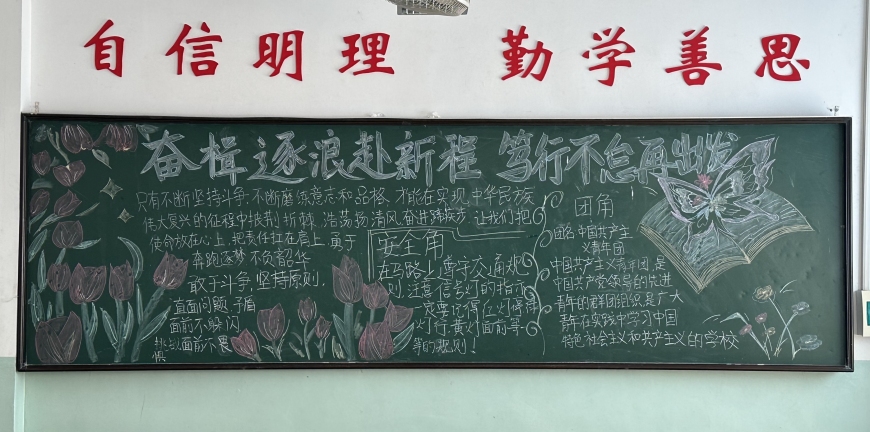 自信明理 勤学善思
奋楫逐浪赴新程 笃行不怠再出发
只有不断坚持斗争,不断磨练意志和品格,才能在实现中华民族
伟大复兴的征程中披荆折棘,浩荡扬清风奋进踏疾步,让我们把
使命放在心上,把责任扛在肩上,勇于
奔跑逐梦,不负韶华
敢于斗争,坚持原则,
直面问题,矛盾
面前不躲闪
挑战面前不畏
惧
安全角
在马路上遵守交通规
则,注意信号灯的指示
一定要记得红灯停绿
灯行,黄灯面前等一
等的规则!
团角
团名:中国共产主
义青年团
中国共产主义青年团,是
中国共产党领导的先进
青年的群团组织,是广大
青年在实践中学习中国
特色社会主义和共产主义的学校